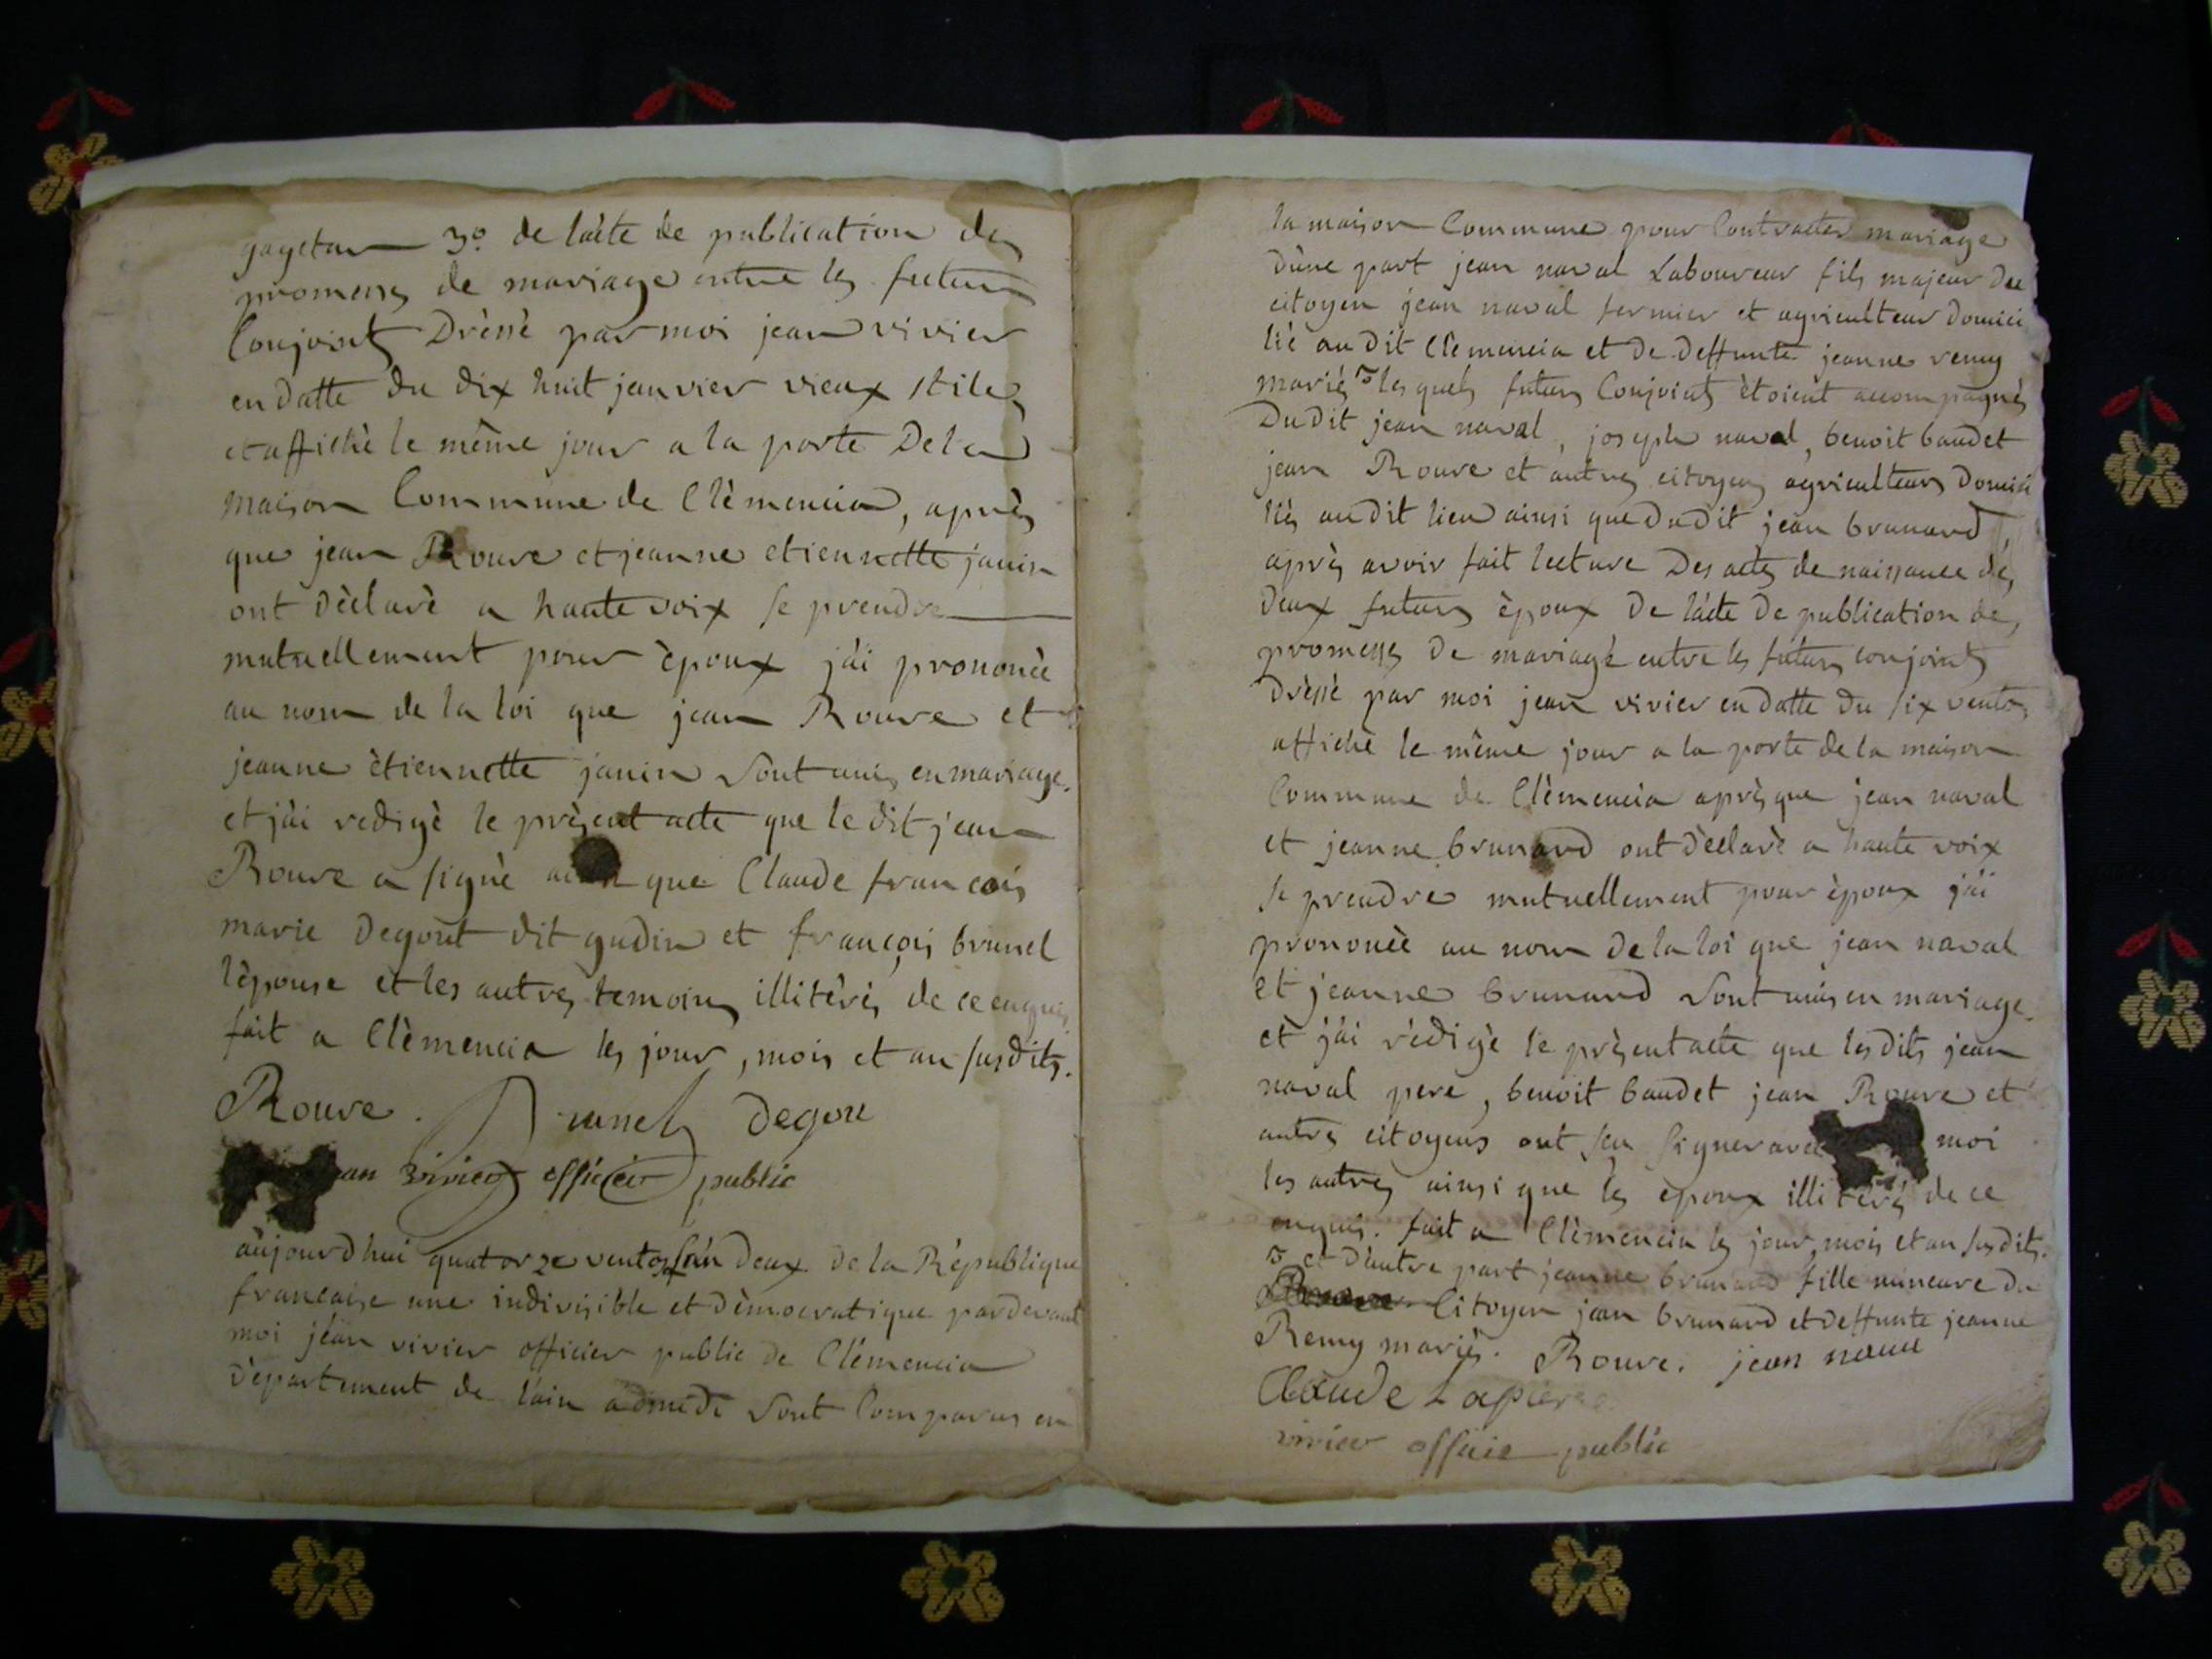 gagetan 3º de l'acte de publication des
promesses de mariage entre les futurs
Conjoints Drèssè par moi jean vivier
en datte du dix huit janvier vieux stile
et affichè le même jour a la porte De la
maison Commune de Clèmencia, après
que jean Rouve et jeanne etiennette janin
ont dèclarè a haute voix se prendre
mutuellement pour èpoux j'ai prononcè
au nom de la loi que jean Rouve et
jeanne ètiennette janin sont unis en mariage.
et j'ai redigè le prèsent acte que le dit jean
Rouve a signè que Claude francois
marie Degout dit gudin et françois brunel
l'èpouse et les autres temoins illitèrès de ce enquis
fait a Clèmencia les jour, mois et an susdits.
Rouve. Brunel Degou
vivier officier public
aujourd'hui quatorze ventose l'an deux de la Rèpublique
francaise une indivisible et dèmocratique pardevant
moi jean vivier officier public de Clèmencia
Dèpartement de l'ain sont Comparus en
la maison Commune pour Contracter mariage
D'une part jean naval Laboureur fils majeur du
citoyen jean naval fermier et agriculteur Domici
liè au dit Clèmencia et de deffunte jeanne remy
mariès lesquels futurs Conjoints ètoient accompagnès
Dudit jean naval, joseph naval, benoit baudet
jean Rouve et autres citoyens agriculteurs Domici
liès au dit lieu ainsi que dudit jean brunard,
après avoir fait lecture Des actes de naissance des
deux futurs èpoux De l'acte De publication de
promesses De mariage entre les futurs conjoints
drèssè par moi jean vivier en datte du six ventose
affichè le même jour a la porte de la maison
Commune de Clèmencia après que jean naval
et jeanne brunard ont dèclarè a haute voix
se prendre mutuellement pour èpoux j'ai
prononcè au nom de la loi que jean naval
et jeanne brunard sont unis en mariage.
et j'ai rèdigè le prèsent acte que lesdits jean
naval pere, benoit baudet jean Rouve et
autres citoyens ont scu signer avec moi
les autres ainsi que les èpoux illitèrès de ce
enquis. fait a Clèmencia les jour, mois et an susdits.
et d'autre part jeanne brunard fille mineure du
Citoyen jean brunard et deffunte jeanne
Remy mariès. Rouve. jean naval
Claude Lapierre
vivier officie public